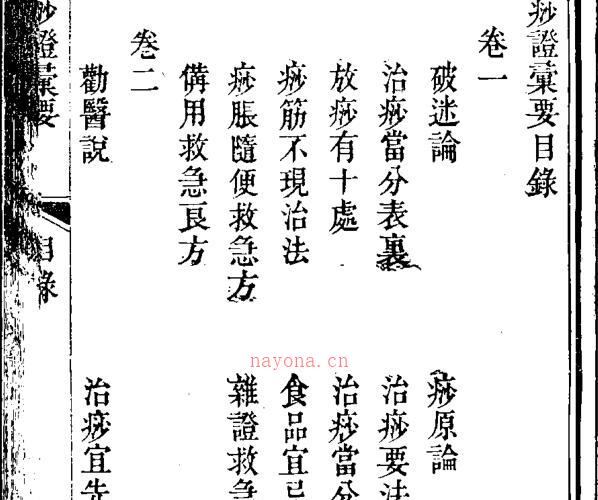 痧證彙要目錄
卷一
破迷論 痧原論
治痧當分表裏 治痧要法
放痧有十處 治痧當分
痧筋不現治法 食品宜忌
痧脹隨便救急方 雜證救急
備用救急良方
卷二
勸醫說 治痧宜先
痧證彙要 目錄
nayona.cn